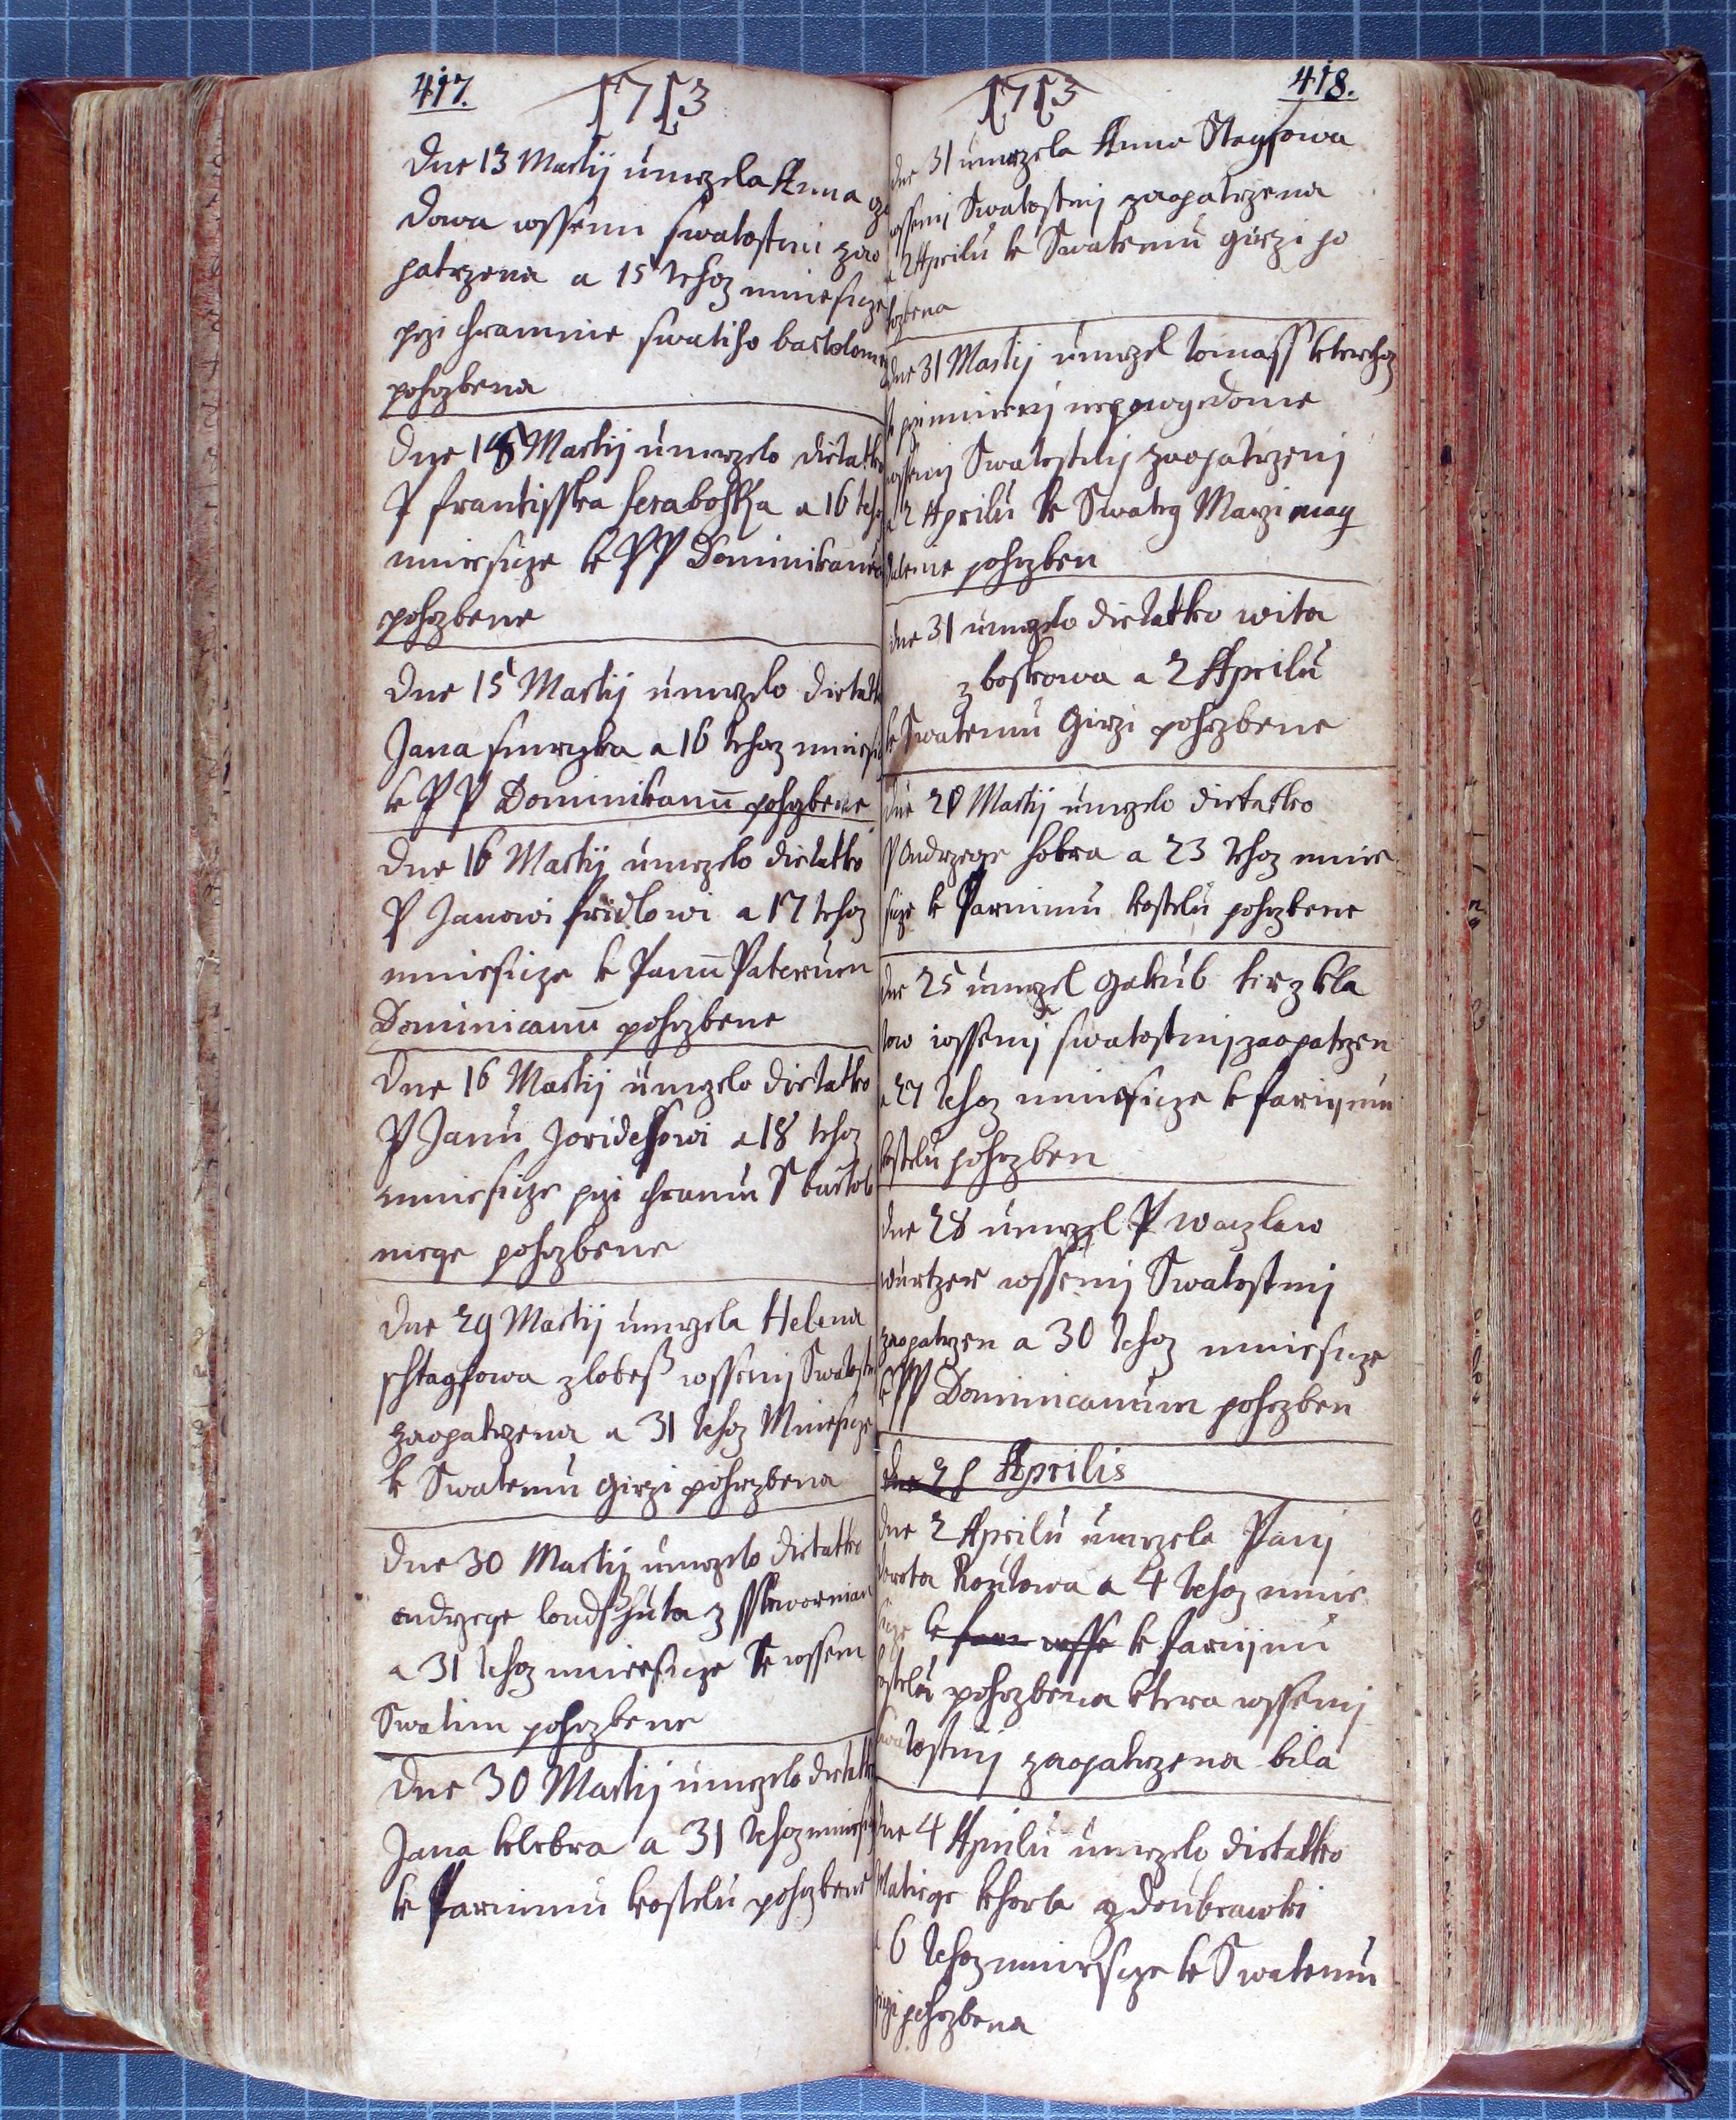 417.
1713
Dne 13 Martij umrzela Anna
dowa wssemi swatostmi zao
patrzena a 15 tehoz mniesicze
przi chramnie swatiho bartolom
pohrzbena
Dne 15 Martij umrzelo dietatko
P frantisska a 16 teho
mniesicze k PP Dominikanu
pohrzbene
Dne 15 Martij umrzelo dietatk
Jana smrczka a 16 tehoz mniesi
k PP Dominikanu pohrzbene
Dne 16 Martij umrzelo dietatko
P Janowi fridlowi a 17 tehoz
mniesicze k Panu Paterum
Dominicanu pohrzbene
Dne 16 Martij umrzelo dietatko
P Janu a 18 tehoz
mniesicze przi chramu S bartolo
miege pohrzbene
Dne 29 Martij umrzela Helena
schtagfowa z lobeß wssemij Swatostm
zaopatrzena a 31 tehoz Mniesicze
k Swatemu Girzi pohrzbena
Dne 30 Martij umrzelo dietatko
ondrzege z sskwornian
a 31 tehoz mniesicze Ke wssem
Swatim pohrzbene
Dne 30 Martij umrzelo dietatko
Jana klebra a 31 tehoz mniesicz
k farnimu kostelu pohrzbene
418.
1713
dne 31 umrzela Anna Stagfowa
wssemij Swatostmij zaopatrzena
a 2 Aprilu k Swatemu girzi po
hrzbena
dne 31 Martij umrzel tomass kterehoz
wssemij Swatostmij zaopatrzenj
a 2 Aprilu k Swateg Marzi mag
dalenie pohrzben
dne 31 umrzelo dietatko wita
z boskowa a 2 Aprilu
k Swatemu Girzi pohrzbene
dne 20 Martij umrzelo dietatko
P Ondrzege hobra a 23 tehoz mnie
sicze k farnimu kostelu pohrzbene
dne 25 umrzel Gakub
wssemij swatostmij zaopatrzen
a 27 tehoz mniesicze k farnjmu
kostelu pohrzben
dne 28 umrzel P waczlaw
würtzer wssemij Swatostmij
zaopatrzen a 30 tehoz mniesicze
k PP Dominicanum pohrzben
dne 28 Aprilis
dne 2 Aprilu umrzela Panj
dorota Koutowa a 4 tehoz mnie
sicze k farnijmu
kostelu pohrzbena ktera wssemij
swatostmij zaopatrzena bila
dne 4 Aprilu umrzelo dietatko
Matiege khorla z doubrawki
a 6 tehoz mniesicze k Swatemu
girzi pohrzbena